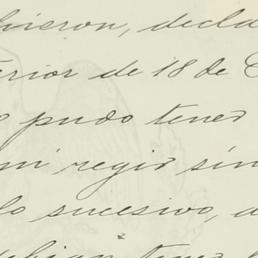 hicieron, decla
erior de 18 de
pudo tener
ni regir sin
lo sucesivo,
tener